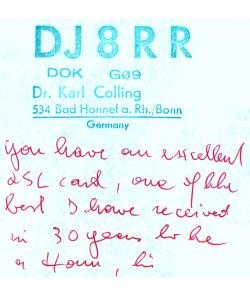 DJ8RR
DOK GØ9
Dr. Karl Colling
534 Bad Honnef a. Rh./Bonn
Germany
you have an excellent
QSL card, one of the
best I have received
in 30 years to be
a Ham,